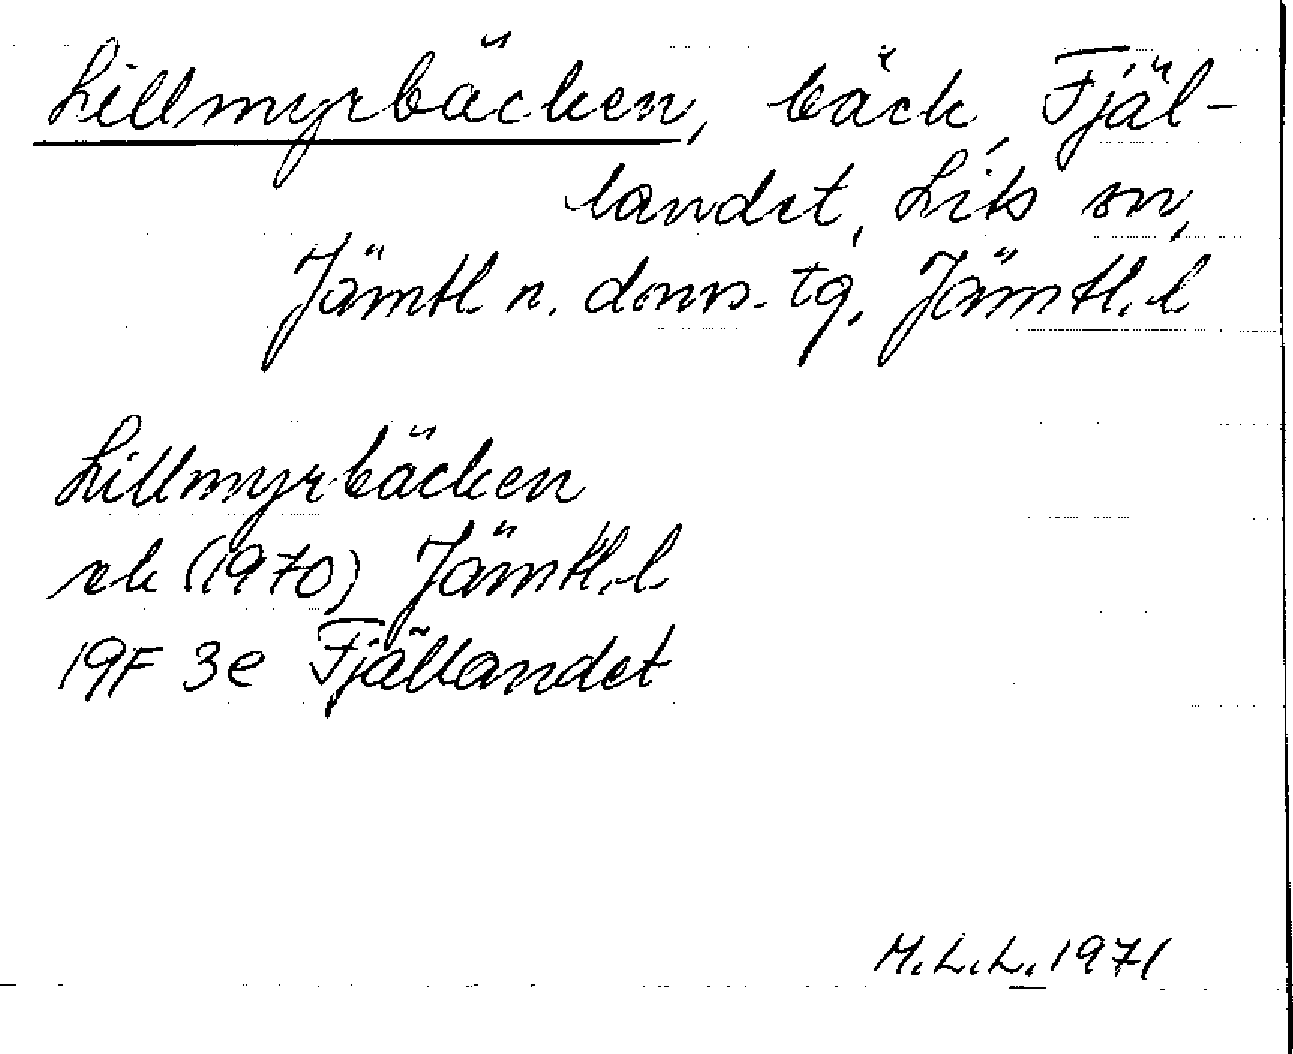 Lillmyrbäcken, bäck, Fjäl-
landet, Lits sn,
Jämtl n. doms. tg, Jämtl. l
Lillmyrbäcken
ek (1970) Jämtl. l
19F 3e Fjällandet
M.L.L. 1971